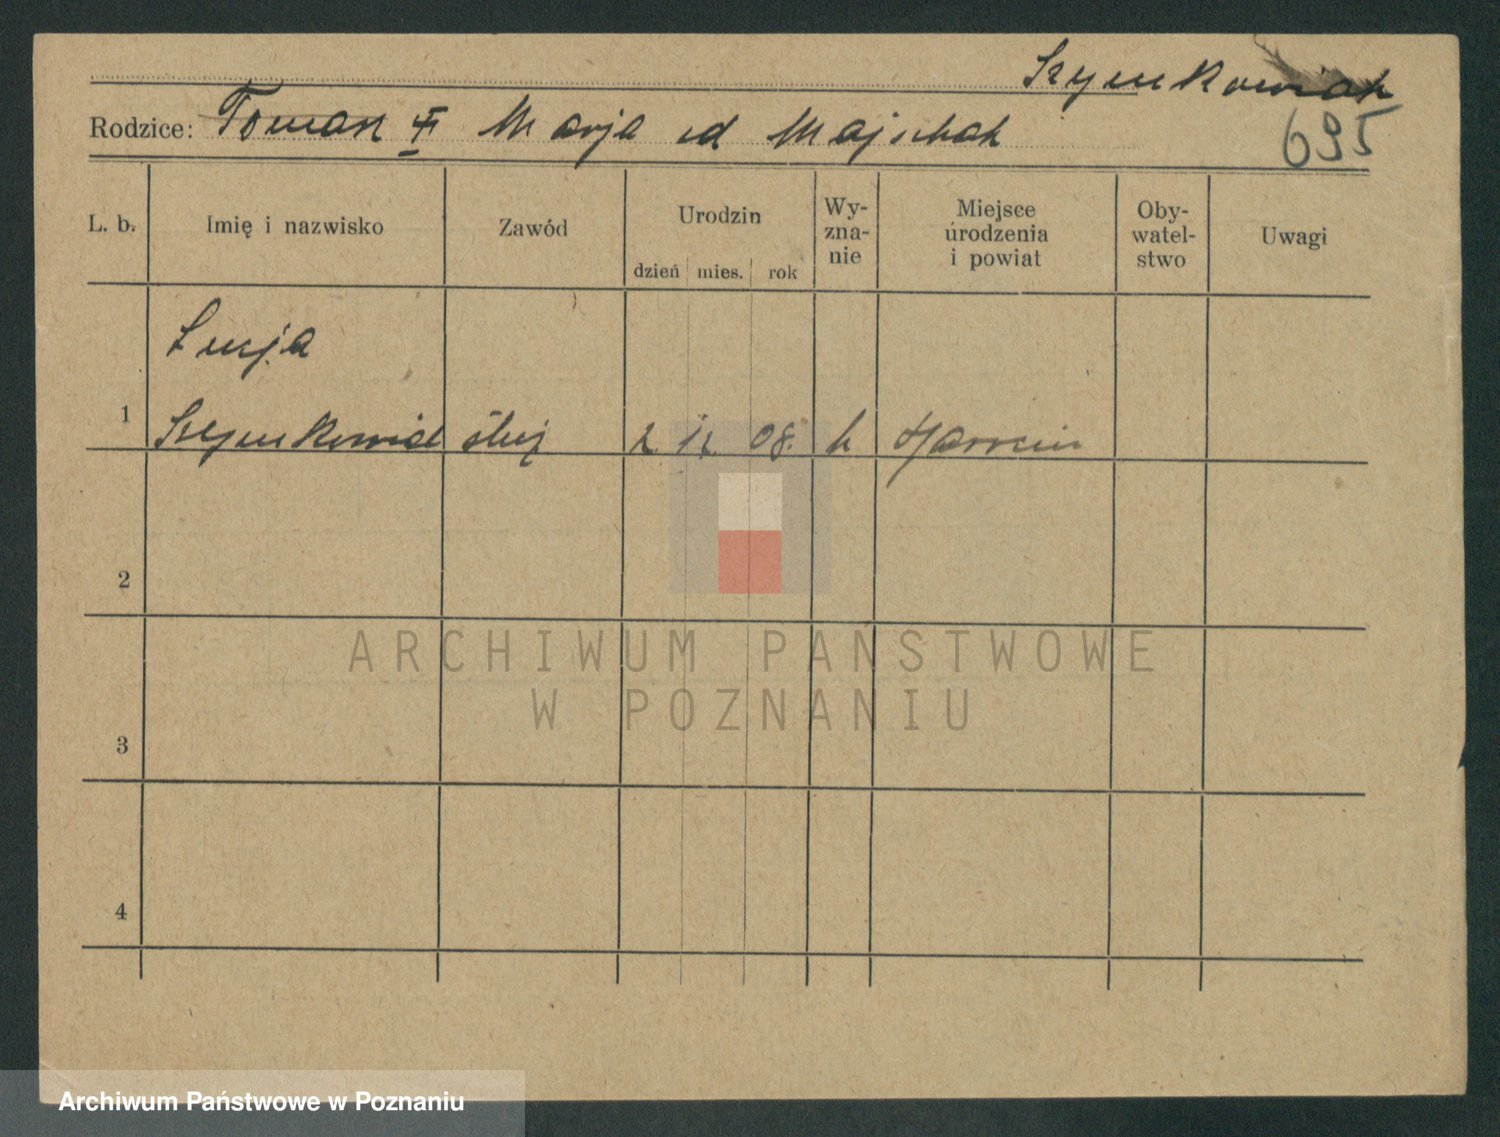 Szymkowiak
695
Rodzice: Tomasz Marja
L. b. Imię i nazwisko Zawód Urodzin dzień mies. rok Wy-zna-nie Miejsce urodzenia i powiat Oby-watel-stwo Uwagi
Łucja
1 Szymkowiak służ 2 12 08.
2
3
4
ARCHIWUM PAŃSTWOWE
W POZNANIU
Archiwum Państwowe w Poznaniu